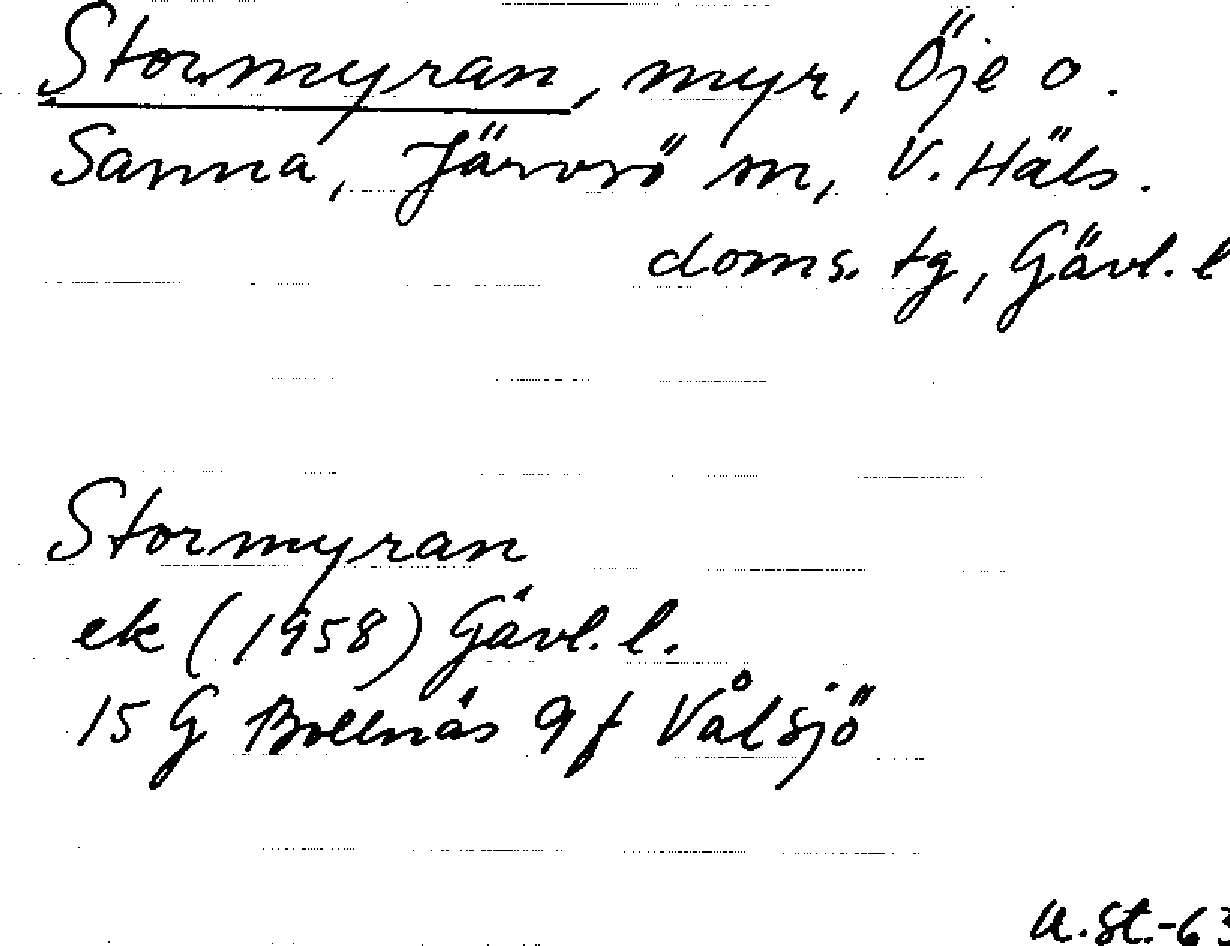 Stormyran, myr, Öje o.
Sanna, Järvsö sn, V. Häls.
doms. tg, Gävl. l
Stormyran
ek (1958) Gävl. l.
15 G Bollnäs 9 f Vålsjö
U. St.-63